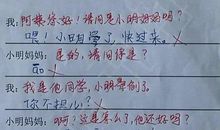 我：阿姨你好！请问是小明妈妈吗？
喂！小明有学了，快过来。
小明妈妈：是的，请问你是？
我：我是他同学，小明晕倒了。
你不担心？
小明妈妈：啊？这是怎么了，他还好吗？